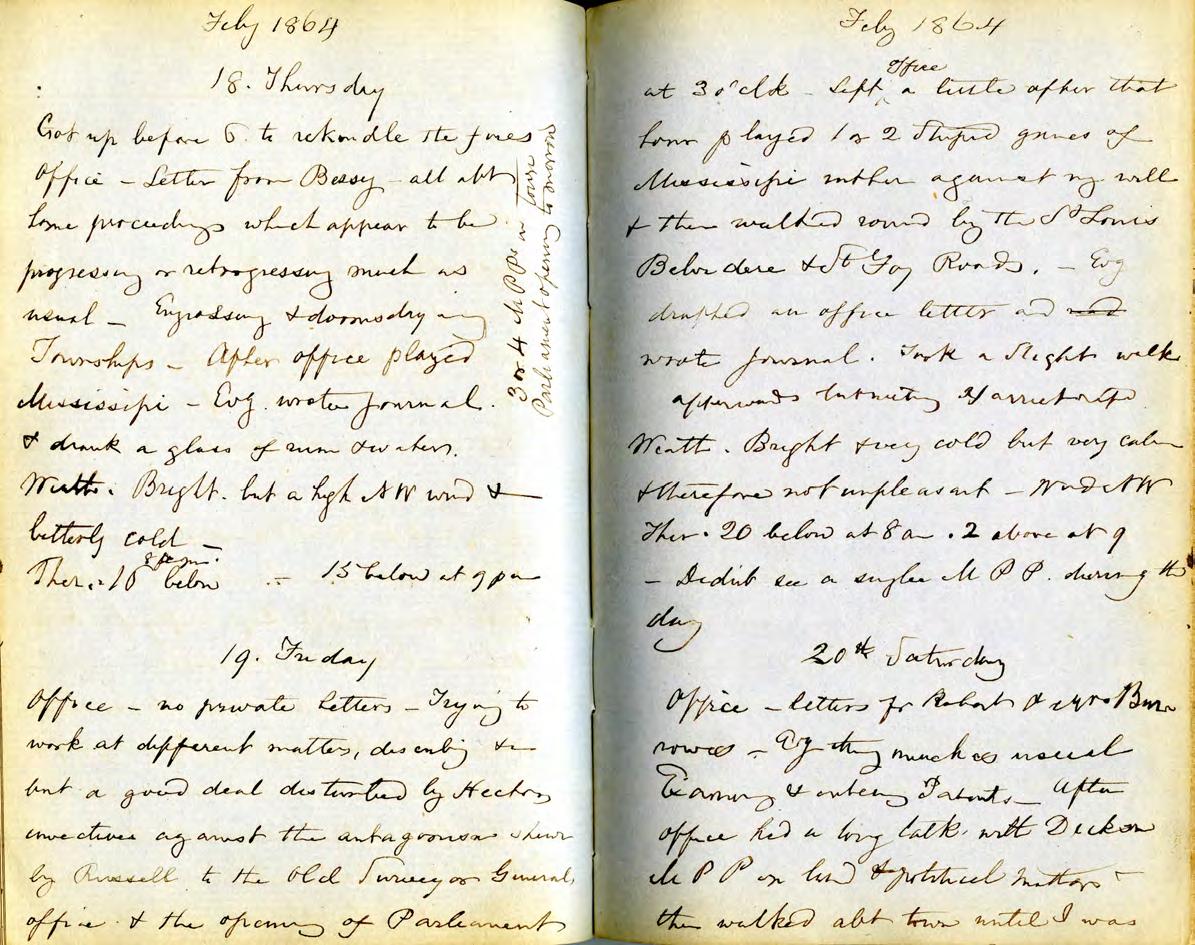 Feby 1864
18. Thursday
Got up before 6 to rekindle the fires
Office - Letter from Bessy - all abt
home proceedings which appear to be
progressing or retrogressing much as
usual - Engrossing & doomsdaying
Townships - After office played
Mississipi - Evg. wrote journal.
& drank a glass of rum & water.
Weath. Bright. but a high NW wind &
bitterly cold -
8 pm.
Ther. 10 below - 15 below at 9 pm
3 or 4 M P Ps in town
Parliament opening to morrow
19. Friday
Office - no private letters - Trying to
work at different matters, describing &c
but a good deal disturbed by Hectors
invectives against the antagonism shewn
by Russell to the Old Surveyor General,
office & the opening of Parliament
Feby 1864
Office
at 3 o'clk - Left a little after that
hour played 1 or 2 stupid games of
Mississipi rather against my will
& then walked round by the St Louis
Belvidere & St Foy Roads. - Evg
drafted an office letter and
wrote journal. Took a slight walk
afterwards
Weath. Bright & very cold but very calm
& therefore not unpleasant - Wind NW
Ther. 20 below at 8 am. 2 above at 9
- Didnt see a single M P P. during the
day
20th Saturday
Office - letters for Robert & Mrs Bur
rowes - Evy thing much as usual
Examing & entering Patents - After
office had a long talk with Dickson
M P P on land & political matters -
then walked abt town until I was